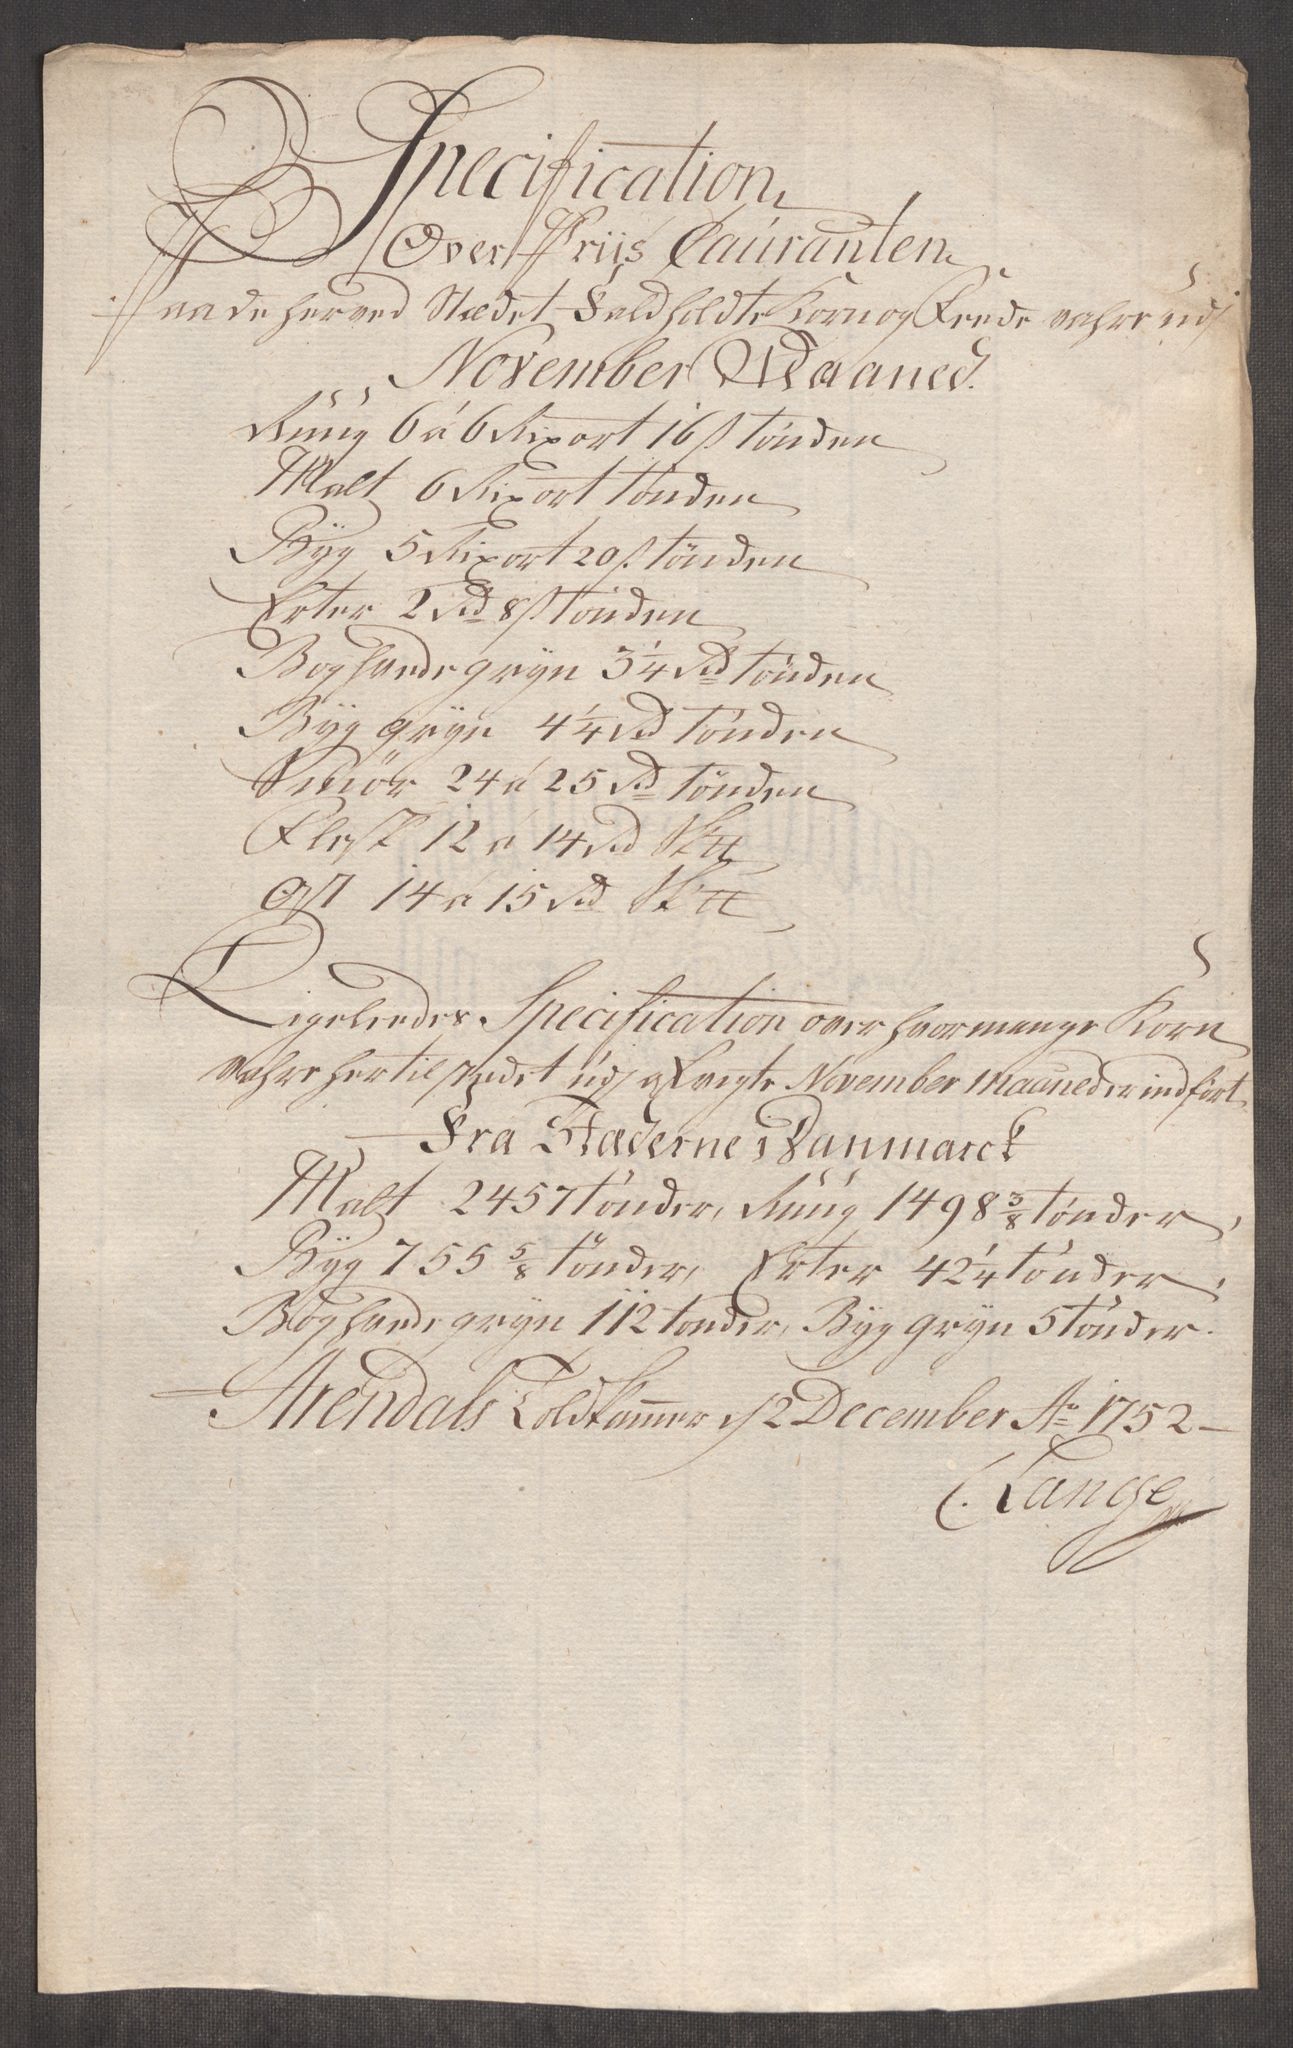 Specification
Over Priis Caúranten
Paa de herved Stædet Faldholdte Korn og Feede vahre údj
November Maaned.
Rúúg 6 á 6 Rixort 16 s tønden
Malt 6 Rixort tønden
Býg 5 Rixort 20 s. tønden
Erter 2 Rd 8 s tønden
Boghvede grýn 3 1/4 Rd tønden
Býg grýn 4 1/4 Rd tønden
Smör 24 á 25 Rd tønden
Flesk 12 á 14 Rd Sk℔
Ost 14 á 15 Rd Sk℔
Ligeleedes Specification over hvor mange Korn
vahre her til stædet údj Efvegte November maaned er indført
Fra Stæderne i Danmarck
Malt 2457 tønder, Rúúg 1498 3/8 tønder,
Býg 755 5/8 tønder, Erter 42 1/4 tønder,
Boghvede grýn 112 tønder, Býg grýn 5 tønder.
Arendals Toldkammer d 2 December Ao 1752
C. Lange